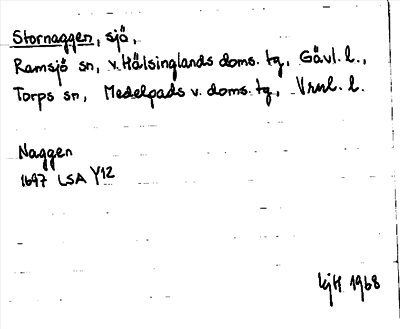 Stornaggen, sjö,
Ramsjö sn, v. Hälsinglands doms. tg, Gävl. l.,
Torps sn, Medelpads v. doms. tg, Vrnl. l.
Naggen
1697 LSA Y12
1968